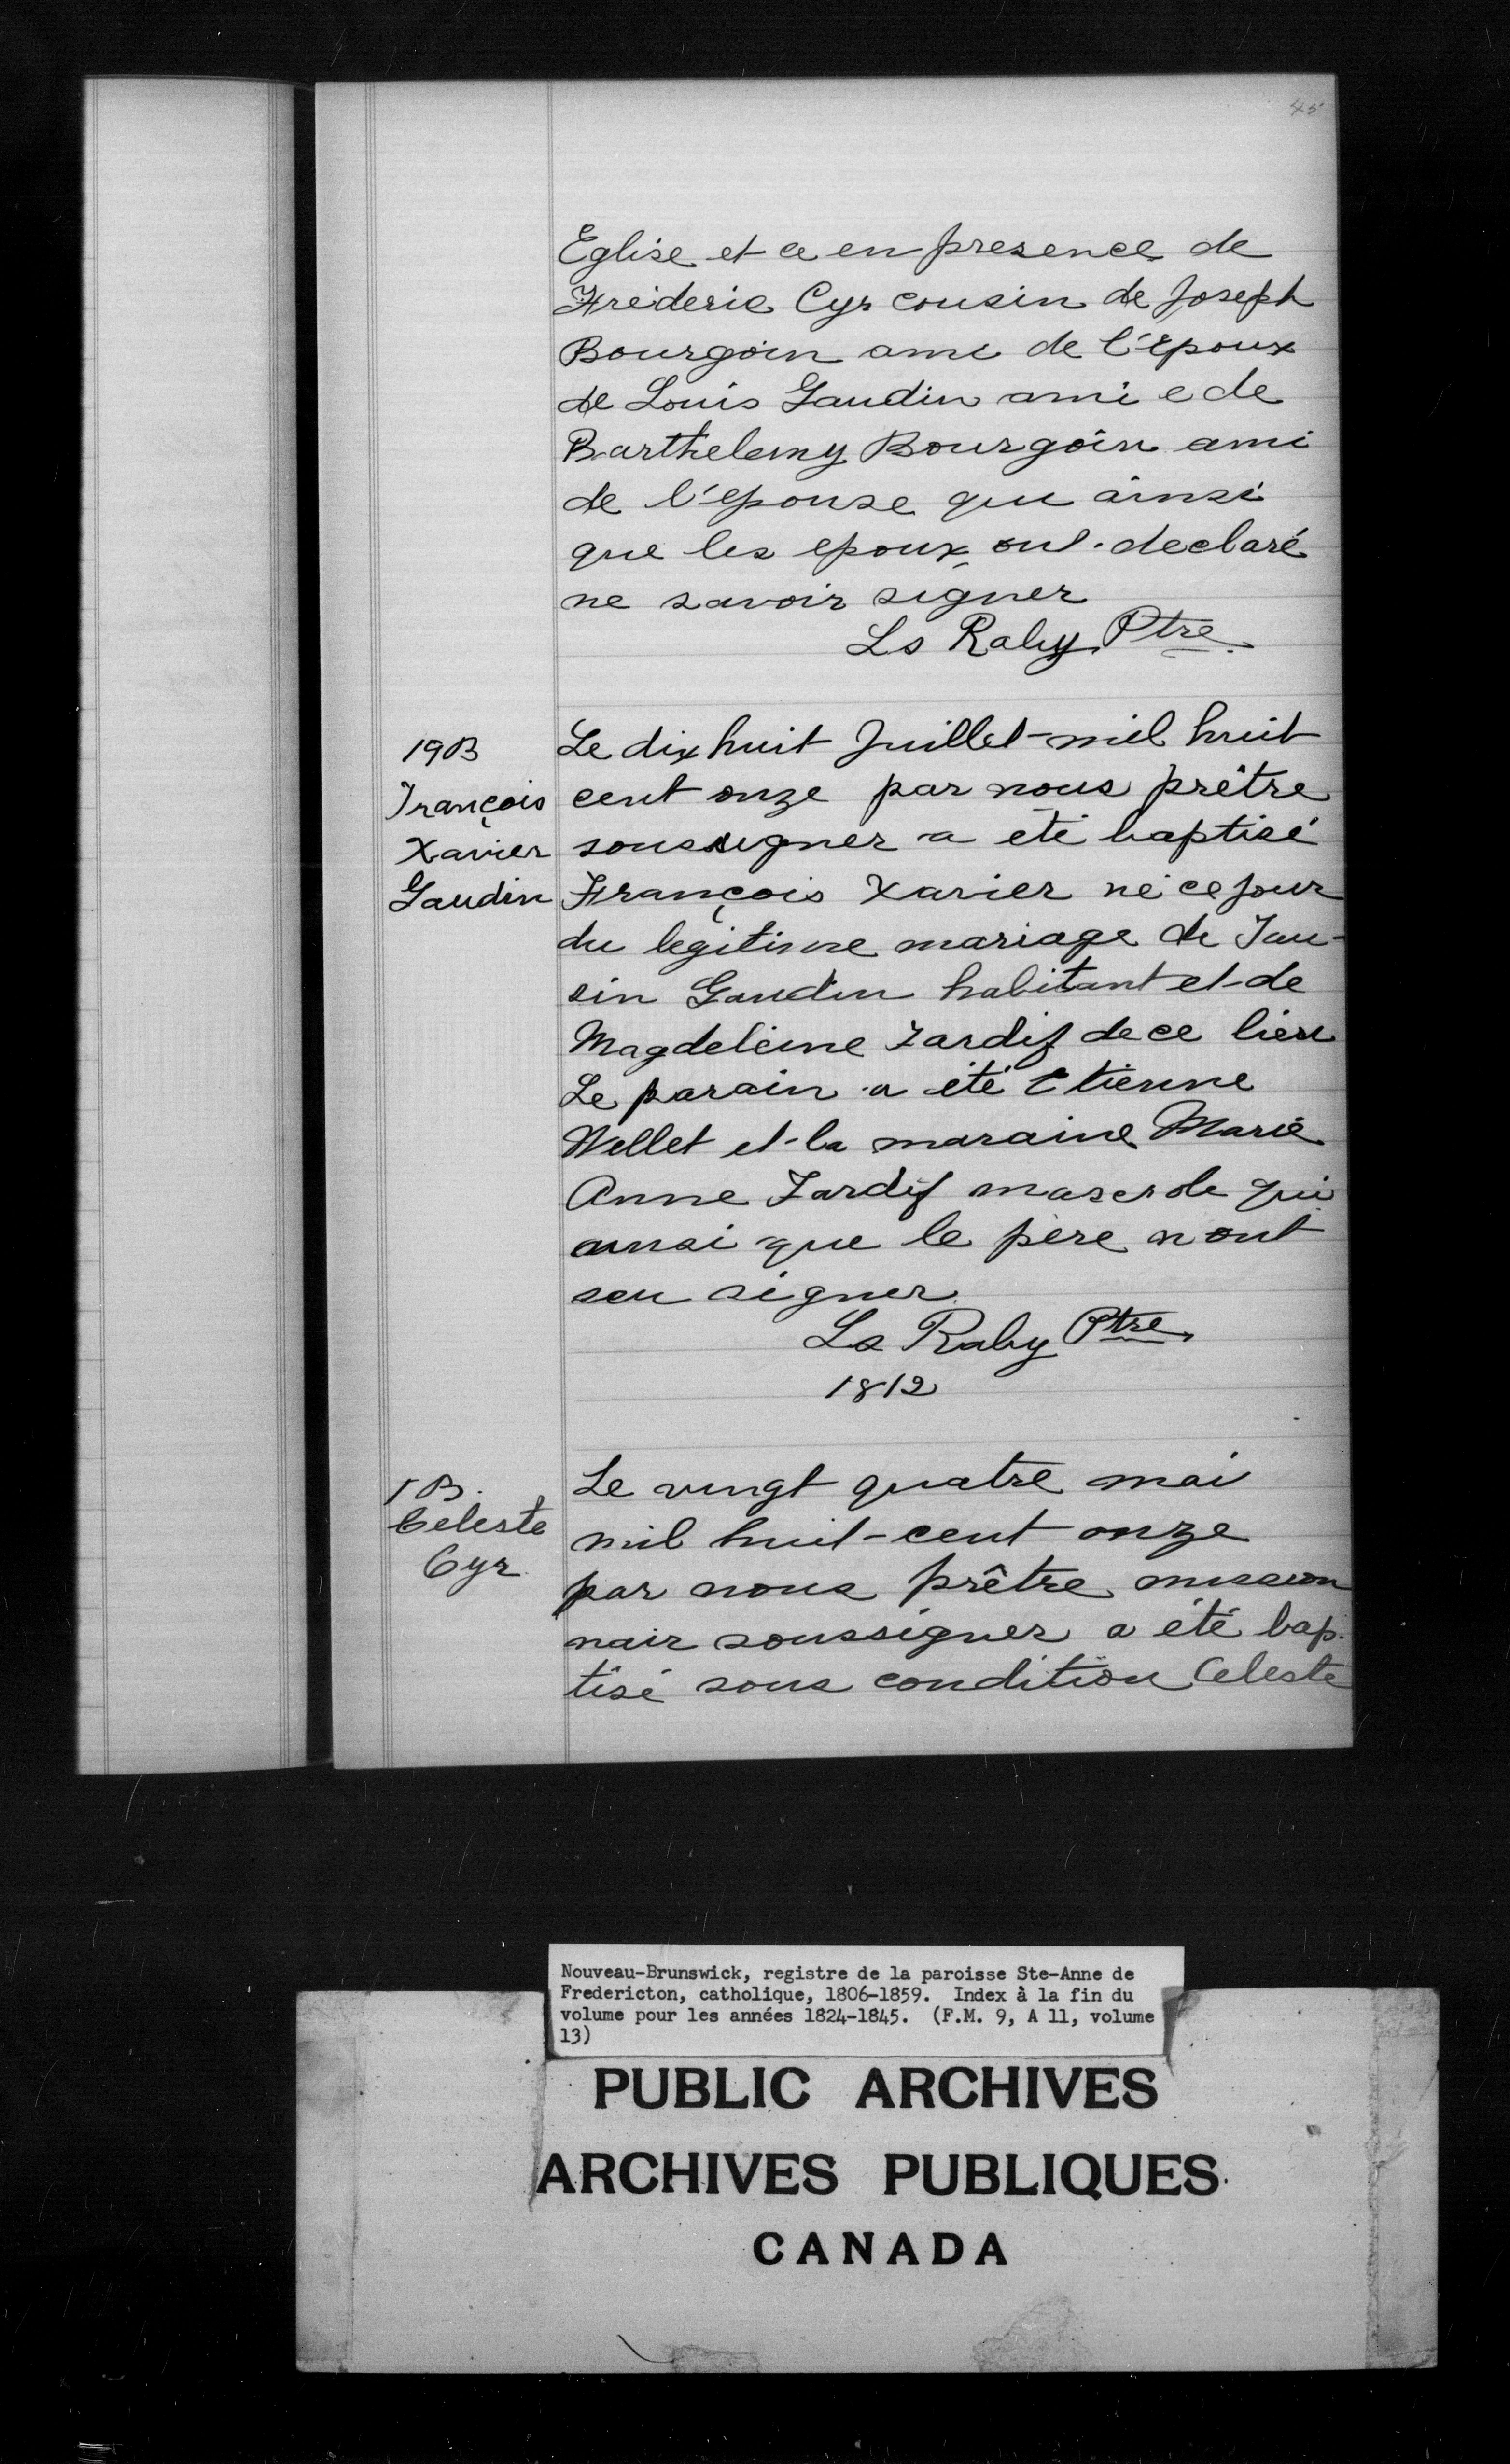 45
Eglise et ce en presence de
Fréderic Cyr cousin de Joseph
Bourgoin ami de l'Epoux
de Louis Gaudin ami e de
Barthelemy Bourgoin ami
de l'epouse qui ainsi
que les epoux ont declaré
ne savoir signer
Ls Raby Ptre
19B
François
Xavier
Gaudin
Le dix huit Juillet mil huit
cent onze par nous prêtre
soussigner a eté baptisé
François Xavier né ce jour
du legitime mariage de
sin Gaudin habitant et de
Magdeleine Tardif de ce lieu
Le parain a été Etienne
Wellet et la maraine Marie
Anne Tardif qui
ainsi que le père n ont
seu signer
Ls Raby Ptre
1812
1 B.
Celeste
Cyr
Le vingt quatre mai
mil huit-cent onze
par nous prêtre mission
nair soussigner a été bap.
tisé sous condition Celeste
Nouveau-Brunswick, registre de la paroisse Ste-Anne de
Fredericton, catholique, 1806-1859. Index à la fin du
volume pour les années 1824-1845. (F.M. 9, A 11, volume
13)
PUBLIC ARCHIVES
ARCHIVES PUBLIQUES
CANADA